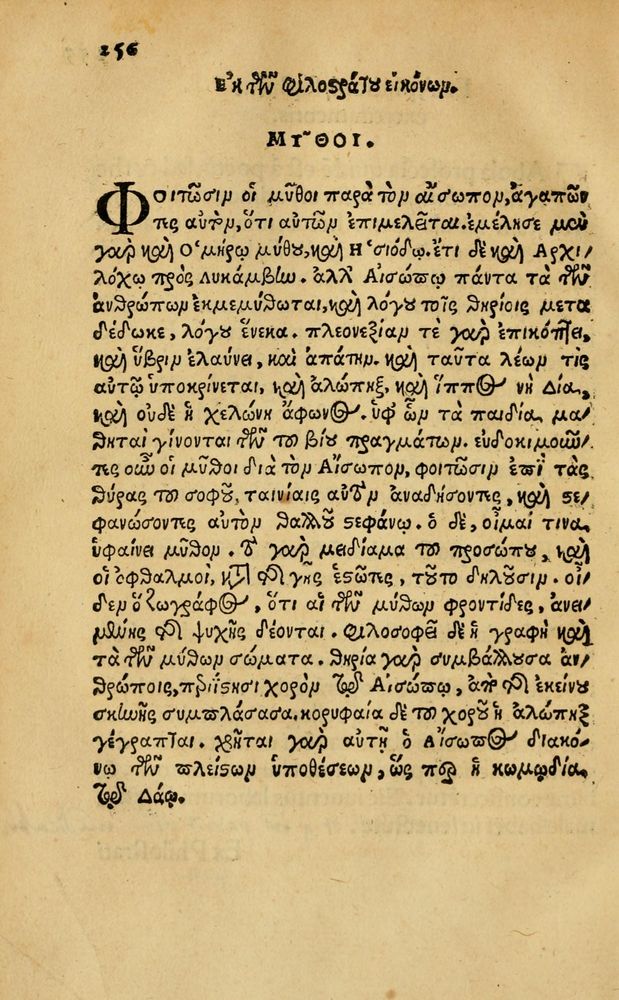 256
Ἐκ τῶν Φιλοστράτου εἰκόνων.
ΜΥ͂ΘΟΙ.
Φοιτῶσιν οἱ μῦθοι παρὰ τὸν αἴσωπον, ἀγαπῶν
τες αὐτὸν, ὅτι αὐτῶν ἐπιμελεῖται. ἐμέλησε μὲν
γὰρ καὶ Ὁμήρῳ μύθου, καὶ Ἡσιόδῳ. ἔτι δὲ καὶ Ἀρχι/
λόχῳ πρὸς Λυκάμβην. ἀλλ' Αἰσώπῳ πάντα τὰ τῶν
ἀνθρώπων ἐκμεμύθωται, καὶ λόγου τοῖς θηρίοις μετα
δέδωκε, λόγου ἕνεκα. πλεονεξίαν τὲ γὰρ ἐπικόπτει,
καὶ ὕβριν ἐλαύνει, καὶ ἀπάτην. καὶ ταῦτα λέων τὶς
αὐτῷ ὑποκρίνεται, καὶ ἀλώπηξ, καὶ ἵππος νὴ Δία,
καὶ οὐδὲ ἡ χελώνη ἄφωνος. ὑφ' ὧν τὰ παιδία μα/
θηταὶ γίνονται τῶν τοῦ βίου πραγμάτων. εὐδοκιμοῦν/
τες οὖν οἱ μῦθοι διὰ τὸν Αἴσωπον, φοιτῶσιν ἐπὶ τὰς
θύρας τοῦ σοφοῦ, ταινίαις αὐτὸν ἀναδήσοντες, καὶ στε/
φανώσοντες αὐτὸν θαλλοῦ στεφάνῳ. ὁ δὲ, οἶμαι τινα
ὑφαίνει μῦθον. τὸ γὰρ μειδίαμα τοῦ προσώπου, καὶ
οἱ ὀφθαλμοὶ, κατὰ τῆς γῆς ἑστῶτες, τοῦτο δηλοῦσιν. οἶ/
δεν ὁ ζωγράφος, ὅτι αἱ τῶν μύθων φροντίδες, ἀνει/
μένης τῆς ψυχῆς δέονται. φιλοσοφεῖ δὲ ἡ γραφὴ καὶ
τὰ τῶν μύθων σώματα. θηρία γὰρ συμβάλλουσα ἀν/
θρώποις, περιίστησι χορὸν τῷ Αἰσώπῳ, ἀπὸ τῆς ἐκείνου
σκηνῆς συμπλάσασα. κορυφαία δὲ τοῦ χοροῦ ἡ ἀλώπηξ
γέγραπται. χρῆται γὰρ αὐτῇ ὁ Αἴσωπος διακό/
νῳ τῶν πλείστων ὑποθέσεων, ὥσπερ ἡ κωμῳδία
τῷ Δάῳ.